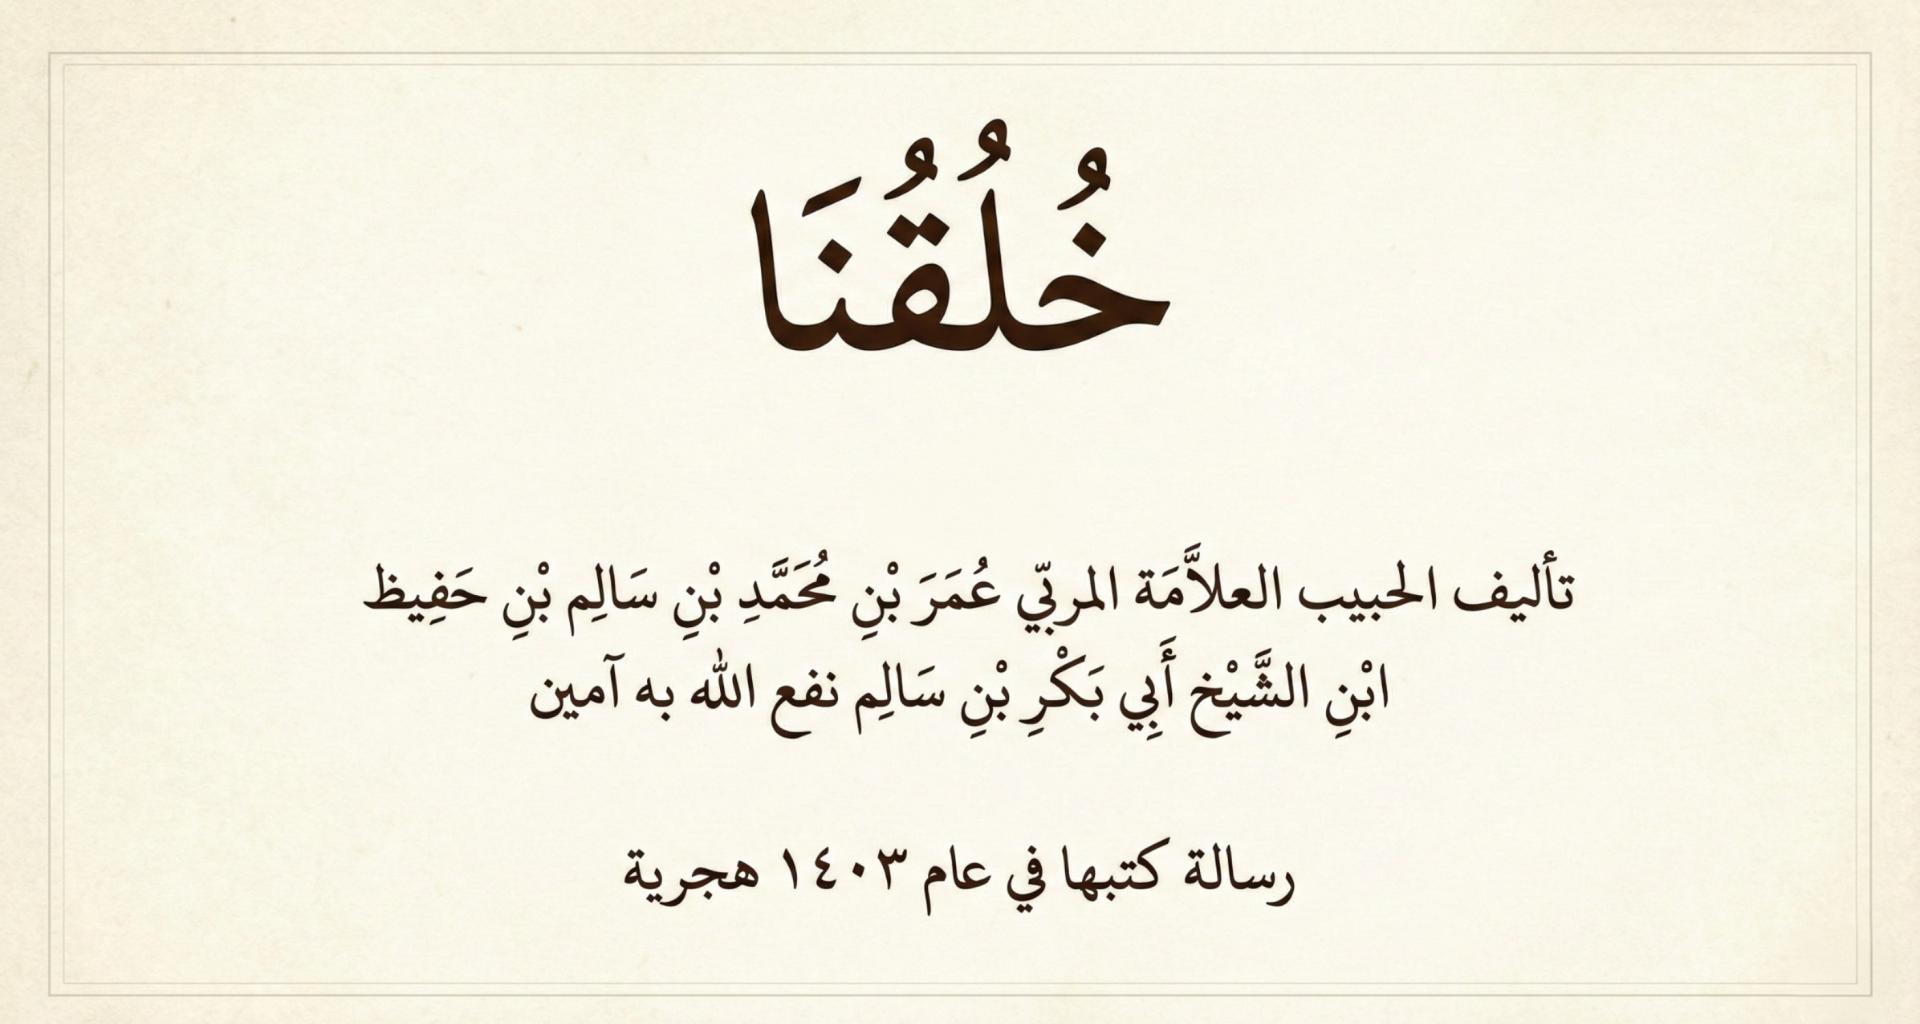 خُلُقُنَا
تأليف الحبيب العلاَّمَة المربّي عُمَرَ بْنِ مُحَمَّدِ بْنِ سَالِم بْنِ حَفِيظ
ابْنِ الشَّيْخ أَبِي بَكْرِ بْنِ سَالِم نفع الله به آمين
رسالة كتبها في عام ١٤٠٣ هجرية